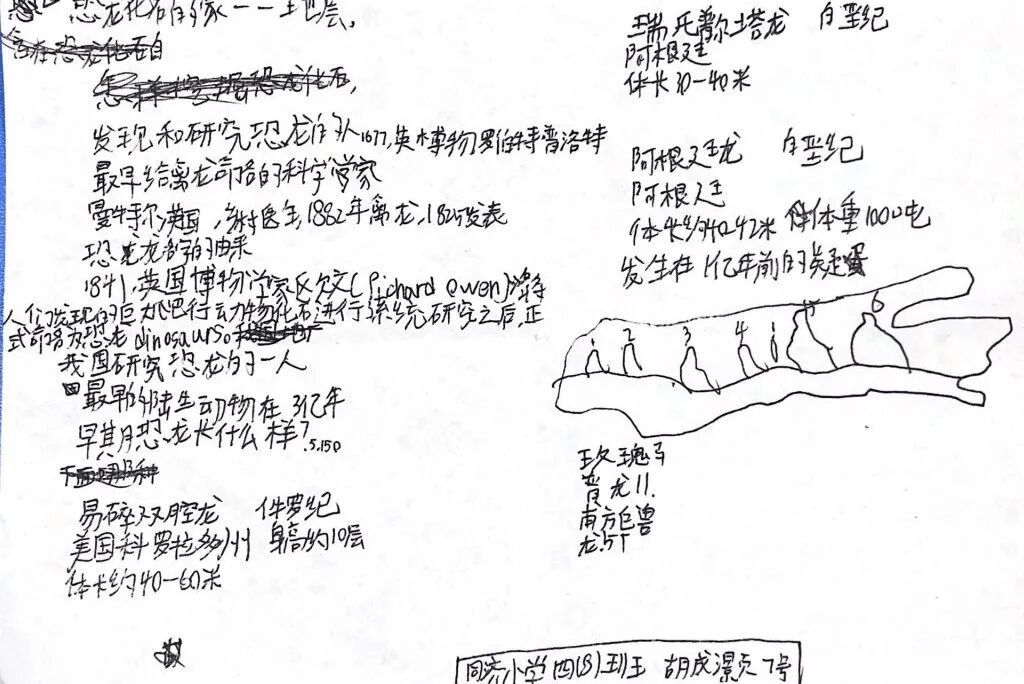 恐龙化石的家——土地层。
发现和研究恐龙的人1677,英木博物罗伯特普洛特
最早给禽龙命名的科学家
曼特尔英国,乡村医生,1882年禽龙,1825发表
恐龙名字的由来
1841,英国博物学家欧文(Richard owen)将
人们发现的巨大爬行动物化石进行系统研究之后,正
式命名为恐龙 dinosaurso
我国研究恐龙的第一人
最早的陆生动物在 3亿年
早期恐龙长什么样?5.150
易碎双腔龙 侏罗纪
美国科罗拉多州 身高约10层
体长约40-60米
瑞氏普尔塔龙 白垩纪
阿根廷
体长30-40米
阿根廷龙 白垩纪
阿根廷
体长约40.42米 体重100吨
发生在1亿年前的
1 2 3 4 5 6
玫瑰马
普龙11.
南方巨兽
龙5T
同济小学四(8)班 胡成 7号